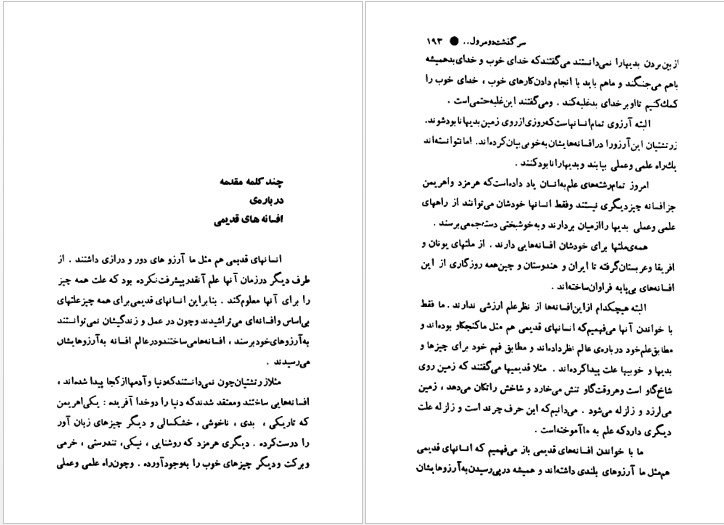 چند کلمه مقدمه
درباره‌ی
افسانه های قدیمی
انسانهای قدیمی هم مثل ما آرزو های دور و درازی داشتند . از
طرف دیگر درزمان آنها علم آنقدر پیشرفت نکرده بود که علت همه چیز
را برای آنها معلوم کند . بنابراین انسانهای قدیمی برای همه چیز علتهای
بی‌اساس و افسانه‌ای می‌تراشیدند وچون در عمل و زندگیشان نمی‌توانستند
به آرزوهای خود برسند ، افسانه‌ها می‌ساختند و در عالم افسانه به آرزوهایشان
می‌رسیدند .
مثلا زرتشتیان چون نمی‌دانستند که دنیا و آدمها از کجا پیدا شده‌اند ،
افسانه‌هایی ساختند و معتقد شدند که دنیا را دو خدا آفریده : یکی اهریمن
که تاریکی ، بدی ، ناخوشی ، خشکسالی و دیگر چیزهای زیان آور
را درست کرده . دیگری هرمزد که روشنایی ، نیکی، تندرستی ، خرمی
وبرکت و دیگر چیزهای خوب را به‌وجود آورده . وچون راه علمی وعملی
سرگذشت دومرول.. ● ۱۹۳
از بین بردن بدیها را نمی‌دانستند می‌گفتند که خدای خوب و خدای بد همیشه
باهم می‌جنگند و ماهم باید با انجام دادن کارهای خوب ، خدای خوب را
کمک کنیم تا او بر خدای بد غلبه کند . ومی‌گفتند این غلبه حتمی است .
البته آرزوی تمام انسانهاست که روزی از روی زمین بدیها نابود شوند.
زرتشتیان این آرزو را در افسانه‌هایشان به‌خوبی بیان کرده‌اند. اما نتوانسته‌اند
یک راه علمی وعملی بیابند و بدیها را نابود کنند .
امروز تمام رشته‌های علم به انسان یاد داده‌است که هرمزد و اهریمن
جز افسانه چیز دیگری نیستند و فقط انسانها خودشان می‌توانند از راههای
علمی وعملی بدیها را از میان بردارند و به خوشبختی دسته‌جمعی برسند .
همه‌ی ملتها برای خودشان افسانه‌هایی دارند . از ملتهای یونان و
افریقا و عربستان گرفته تا ایران و هندوستان و چین همه روزگاری از این
افسانه‌های بی‌پایه فراوان ساخته‌اند .
البته هیچکدام از این افسانه‌ها از نظر علم ارزشی ندارند . ما فقط
با خواندن آنها می‌فهمیم که انسانهای قدیمی هم مثل ما کنجکاو بوده‌اند و
مطابق علم خود درباره‌ی عالم نظر داده‌اند و مطابق فهم خود برای چیزها و
بدیها و خوبیها علت پیدا کرده‌اند . مثلا قدیمیها می‌گفتند که زمین روی
شاخ گاو است و هر وقت گاو تنش می‌خارد و شاخش را تکان می‌دهد ، زمین
می‌لرزد و زلزله می‌شود . می‌دانیم که این حرف چرند است و زلزله علت
دیگری دارد که علم به ما آموخته است .
ما با خواندن افسانه‌های قدیمی باز می‌فهمیم که انسانهای قدیمی
هم مثل ما آرزوهای بلندی داشته‌اند و همیشه در پی رسیدن به آرزوهایشان